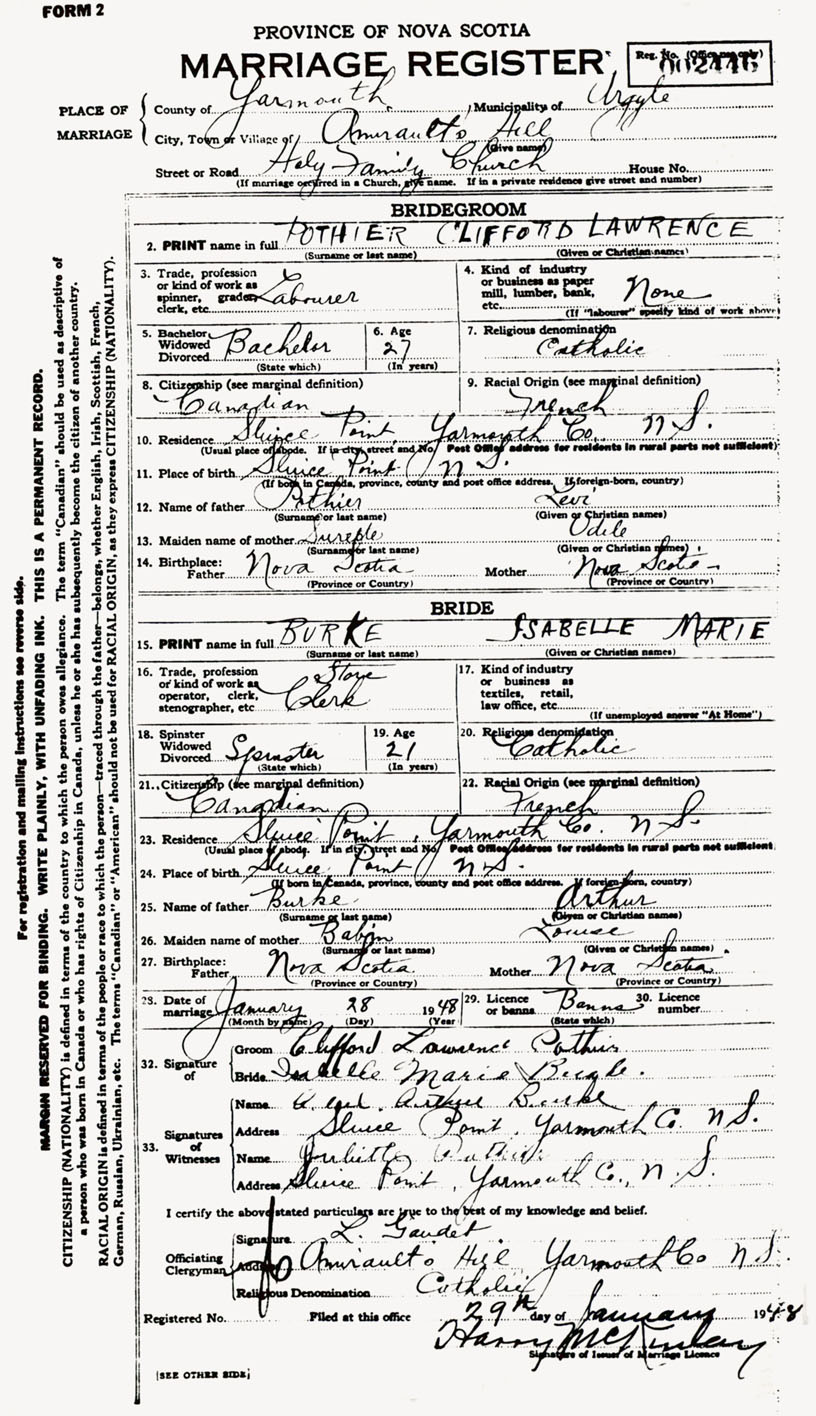 FORM 2
PROVINCE OF NOVA SCOTIA
MARRIAGE REGISTER
Reg. No. (Office use only)
002446
PLACE OF MARRIAGE
County of Yarmouth, Municipality of Argyle
City, Town or Village of Amirault's Hill
(Give name)
Street or Road Holy Family Church House No.
(If marriage occurred in a Church, give name. If in a private residence give street and number)
BRIDEGROOM
2. PRINT name in full POTHIER CLIFFORD LAWRENCE
(Surname or last name) (Given or Christian names)
3. Trade, profession or kind of work as spinner, grader, clerk, etc. Labourer
4. Kind of industry or business as paper mill, lumber, bank, etc. None
(If "labourer" specify kind of work above)
5. Bachelor Widowed Divorced Bachelor
(State which)
6. Age 27
(In years)
7. Religious denomination
Catholic
8. Citizenship (see marginal definition)
Canadian
9. Racial Origin (see marginal definition)
French
10. Residence Sluice Point, Yarmouth Co. N.S.
(Usual place of abode. If in city, street and No. Post Office address for residents in rural parts not sufficient)
11. Place of birth Sluice Point N.S.
(If born in Canada, province, county and post office address. If foreign-born, country)
12. Name of father Pothier Levi
(Surname or last name) (Given or Christian names)
13. Maiden name of mother Odile
(Surname or last name) (Given or Christian names)
14. Birthplace: Father Nova Scotia Mother Nova Scotia
(Province or Country) (Province or Country)
BRIDE
15. PRINT name in full BURKE ISABELLE MARIE
(Surname or last name) (Given or Christian names)
16. Trade, profession or kind of work as operator, clerk, stenographer, etc Store Clerk
17. Kind of industry or business as textiles, retail, law office, etc.
(If unemployed answer "At Home")
18. Spinster Widowed Divorced Spinster
(State which)
19. Age 21
(In years)
20. Religious denomination
Catholic
21. Citizenship (see marginal definition)
Canadian
22. Racial Origin (see marginal definition)
French
23. Residence Sluice Point, Yarmouth Co. N.S.
(Usual place of abode. If in city, street and No. Post Office address for residents in rural parts not sufficient
24. Place of birth Sluice Point N.S.
(If born in Canada, province, county and post office address. If foreign-born, country)
25. Name of father Burke Arthur
(Surname or last name) (Given or Christian names)
26. Maiden name of mother Babin Louise
(Surname or last name) (Given or Christian names)
27. Birthplace: Father Nova Scotia Mother Nova Scotia
(Province or Country) (Province or Country)
28. Date of marriage January 28 1948
(Month by name) (Day) (Year)
29. Licence or banns Banns
(State which)
30. Licence number
32. Signature of
Groom Clifford Lawrence Pothier
Bride Isabelle Marie
33. Signatures of Witnesses
Name Arthur Burke
Address Sluice Point, Yarmouth Co. N.S.
Name
Address Sluice Point, Yarmouth Co., N.S.
I certify the above stated particulars are true to the best of my knowledge and belief.
Officiating Clergyman
Signature L. Gaudet
Address Amirault's Hill Yarmouth Co N.S.
Religious Denomination Catholic
Registered No. Filed at this office 29th day of January 1948
Harry McKinley
Signature of Issuer of Marriage Licence
(SEE OTHER SIDE)
For registration and mailing instructions see reverse side.
MARGIN RESERVED FOR BINDING. WRITE PLAINLY, WITH UNFADING INK. THIS IS A PERMANENT RECORD.
CITIZENSHIP (NATIONALITY) is defined in terms of the country to which the person owes allegiance. The term "Canadian" should be used as descriptive of
a person who was born in Canada or who has rights of Citizenship in Canada, unless he or she has subsequently become the citizen of another country.
RACIAL ORIGIN is defined in terms of the people or race to which the person—traced through the father—belongs, whether English, Irish, Scottish, French,
German, Russian, Ukrainian, etc. The terms "Canadian" or "American" should not be used for RACIAL ORIGIN, as they express CITIZENSHIP (NATIONALITY).